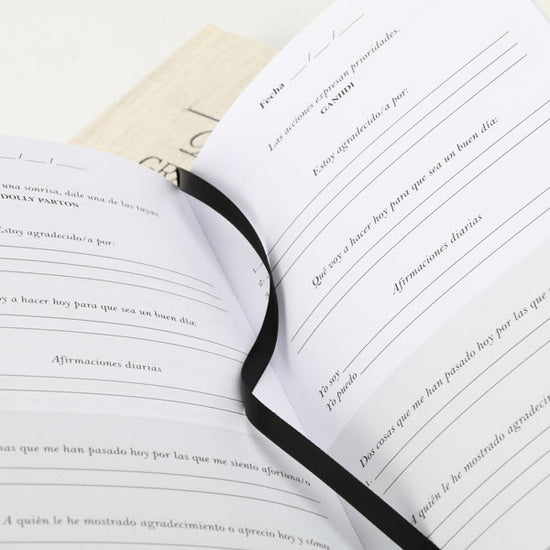 __/__/__
una sonrisa, dale una de las tuyas.
DOLLY PARTON
Estoy agradecido/a por:
a hacer hoy para que sea un buen día:
Afirmaciones diarias
que me han pasado hoy por las que me siento afortuna/o
A quién le he mostrado agradecimiento o aprecio hoy y cómo
Fecha __/__/__
Las acciones expresan prioridades.
GANHDI
Estoy agradecido/a por:
1.
2.
Qué voy a hacer hoy para que sea un buen día:
Afirmaciones diarias
Yo soy
Yo puedo
Dos cosas que me han pasado hoy por las que
1.
A quién le he mostrado